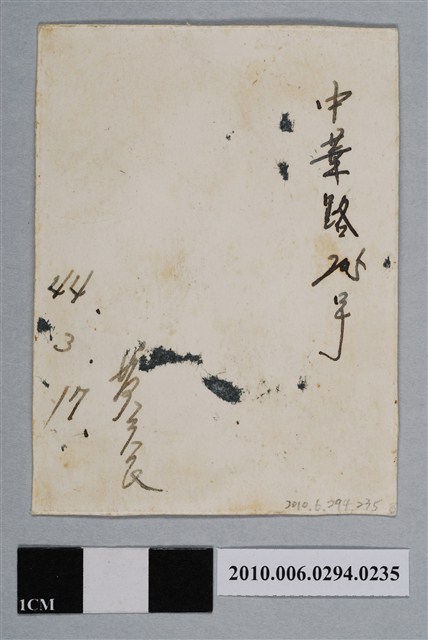 中華路205号
44.
3.
17.
2010.6.294.235
1CM
2010.006.0294.0235